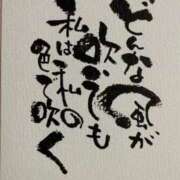 どんな風が
吹いても
私は私の
色で吹く